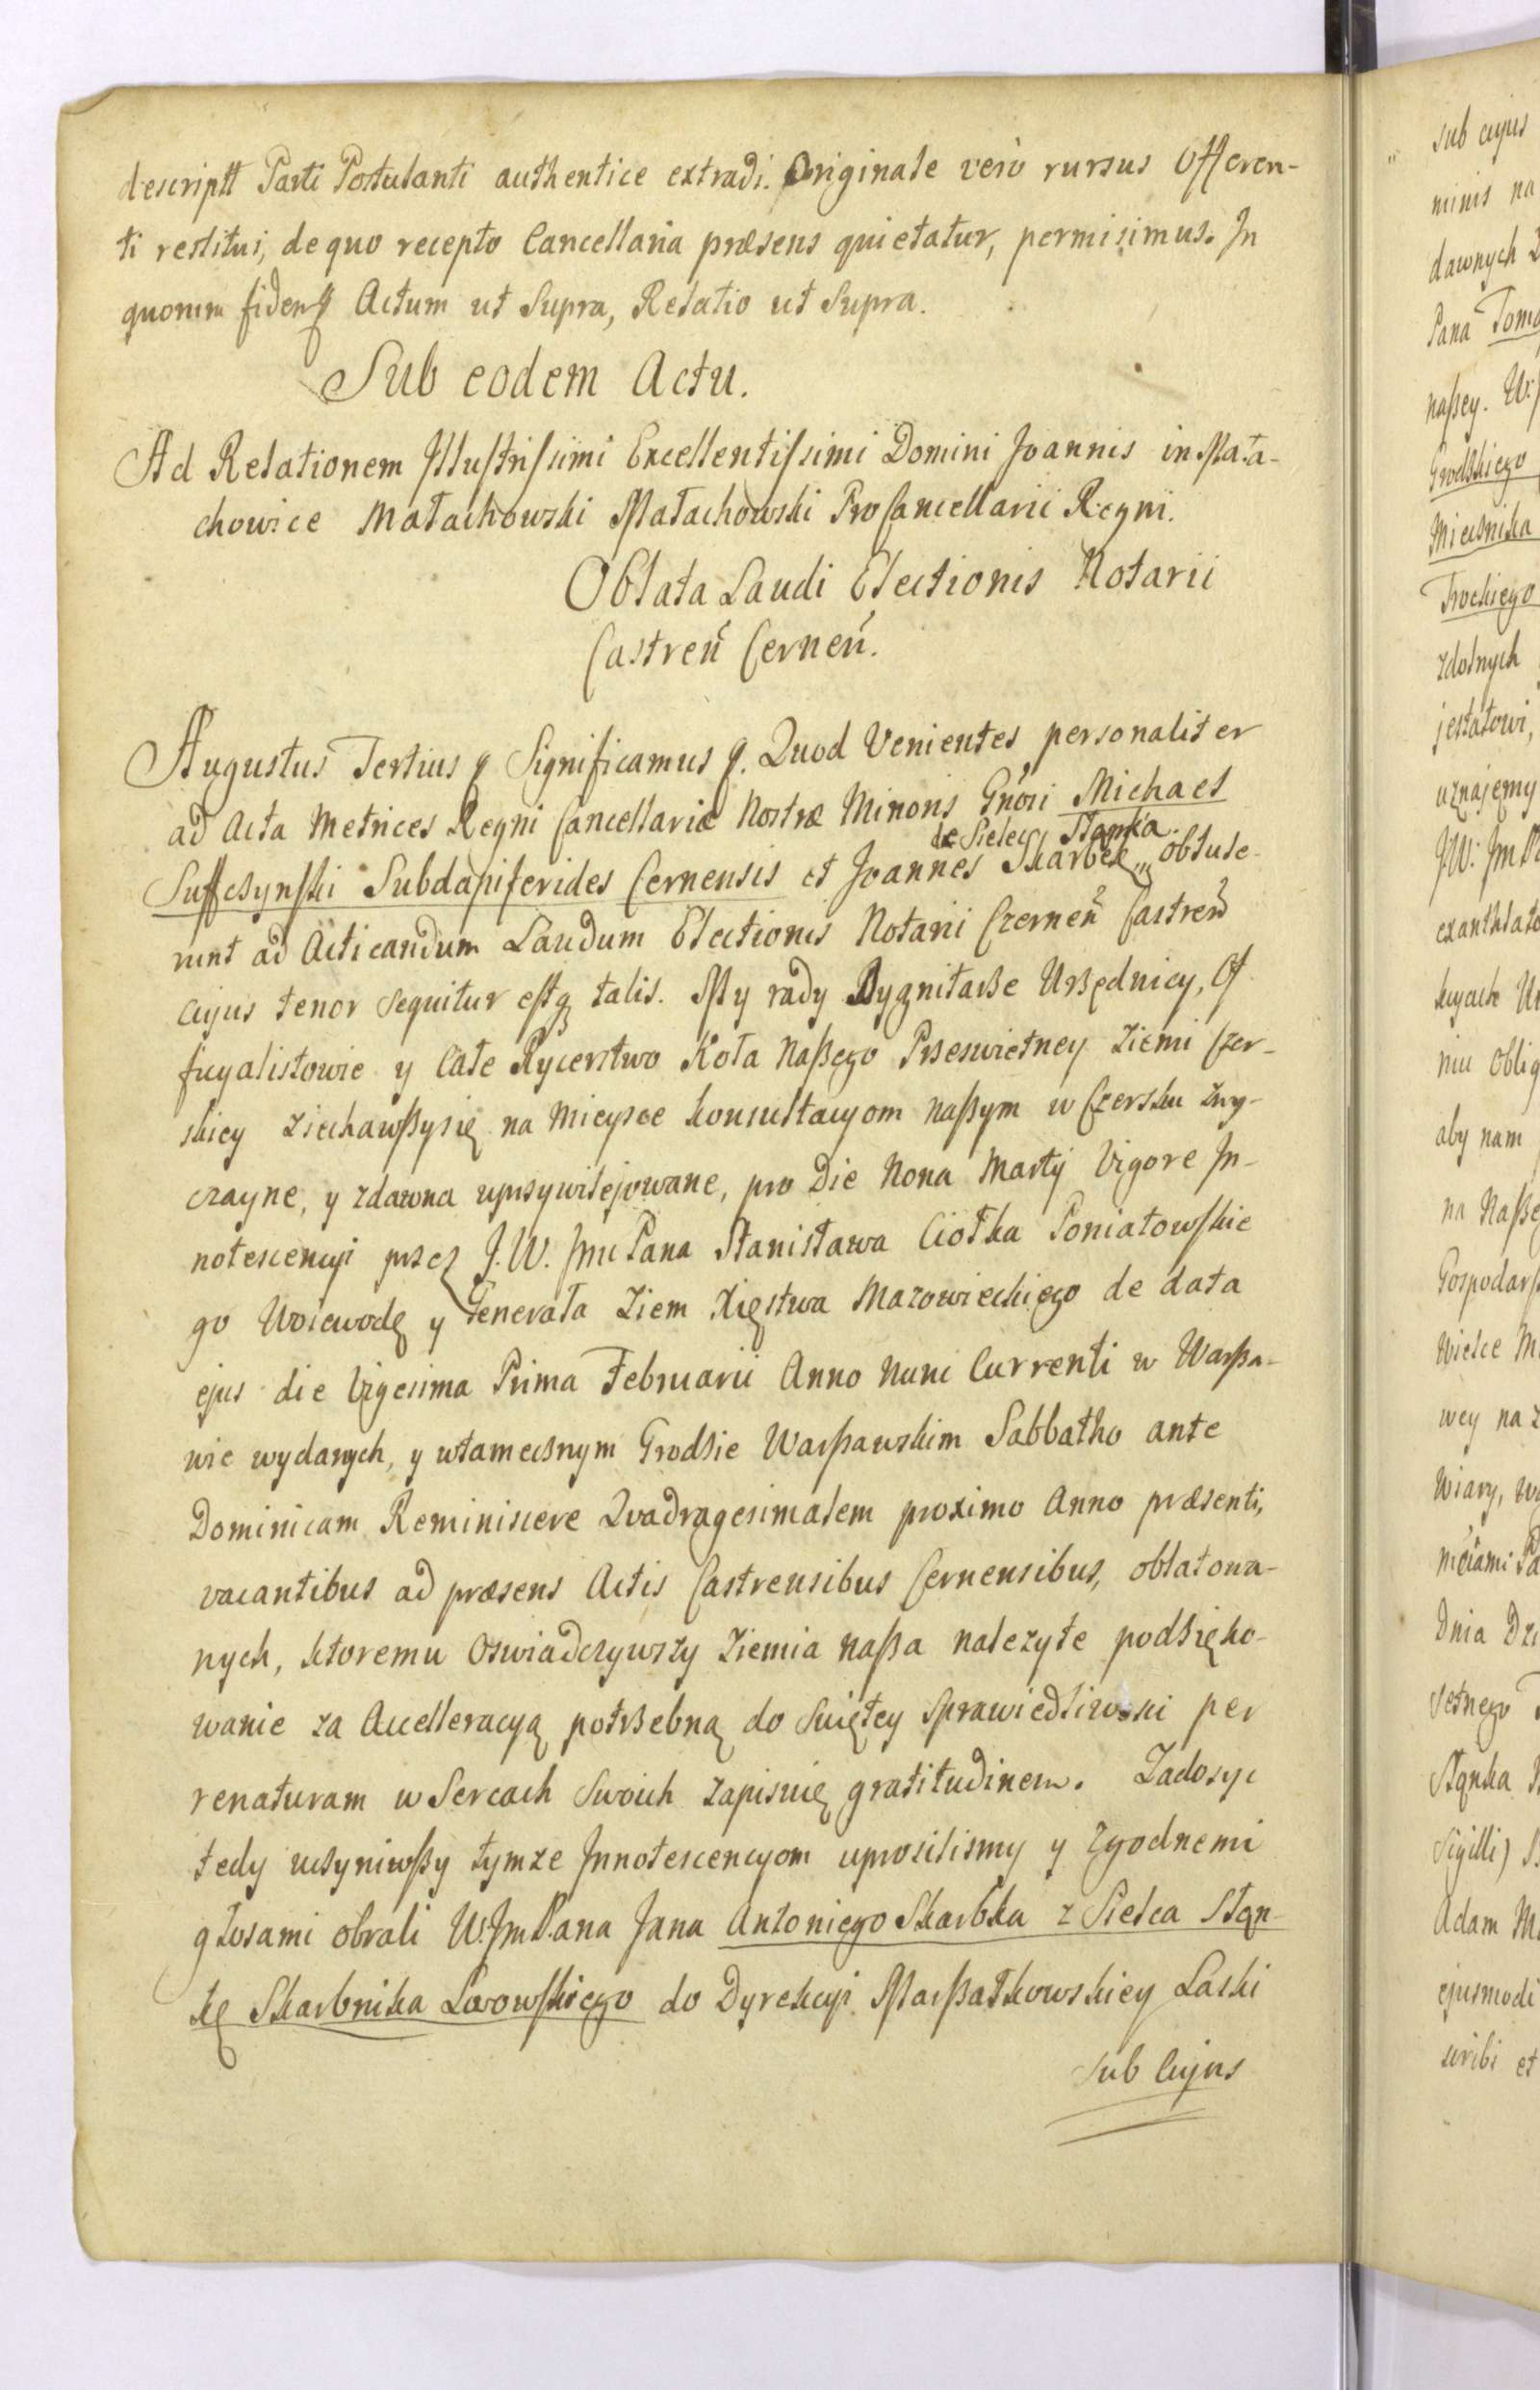 descriptt Parti Postulanti authentice extradi. Originale verò rursus Offeren-
ti restitui, de quo recepto Cancellaria præsens quietatur, permisimus. In
quorum fidem Actum ut Supra, Relatio ut Supra.
Sub eodem Actu.
Ad Relationem Illustrissimi Excellentissimi Domini Joannis in Mała-
chowice Małachowski Małachowski ProCancellarii Regni.
Oblata Laudi Electionis Notarii
Castreń Cerneń.
Augustus Tertius Significamus. Quod Venientes personaliter
ad Acta Metrices Regni Cancellariæ Nostræ Minoris Gnosi Michael
de Sielec Słąmka
Suffczynski Subdapiferides Cernensis et Joannes Skarbek obtule-
runt ad Acticandum Laudum Electionis Notarii Czerneń Castreń
cujus tenor sequitur estq talis. My rady Dygnitarße Urßędnicy, Of
ficyalistowie y Całe Rycerstwo Koła Naßego Prßeswietney Ziemi Czer-
skiey Ziechawßysię na Mieysce konsultacyom naßym w Czersku Zwy-
czayne, y zdawna uprzywilejowane, pro Die Nona Martij Vigore In-
notescencyi przez J. W. Jmc Pana Stanisława Ciołka Poniatowskie
go Woiewodę y Generała Ziem Xięstwa Mazowieckiego de data
ejus die Vigesima Prima Februarii Anno Nunc Currenti w Warßa-
wie wydanych, y wtamecznym Grodzie Warßawskim Sabbatho ante
Dominicam Reminiscere Quadragesimalem proximo Anno præsenti,
vacantibus ad præsens Actis Castrensibus Cernensibus, oblatowa-
nych, ktoremu Oswiadczywszy Ziemia Naßa należyte podzięko-
wanie za Accelleracyą potrßebną do Swiętey Sprawiedliwości per
renaturam w Sercach Swoich zapisuię gratitudinem. Zadosyc
tedy uczyniwßy tymze Innotescencyom uprosilismy y Zgodnemi
głosami obrali W. Jm P.ana Jana Antoniego Skarbka z Sielca Słąn-
kę Skarbnika Lwowskiego do Dyrekcyi Marßałkowskiey Laski
sub Cujus
sub cujus
minis na
dawnych
Pana Toma
naßey.
Grodzkiego
Miecznika
Trockiego
zdolnych
jestatowi,
uznajemy
J.W. Jm P
exanthlato
niu Oblig
aby nam
na Naße
Gospodarß
Wielce M
wey na Z
Wiary,
Dnia Dzi
setnego
Słąnka
Sigilli)
Adam M
ejusmodi
scribi et